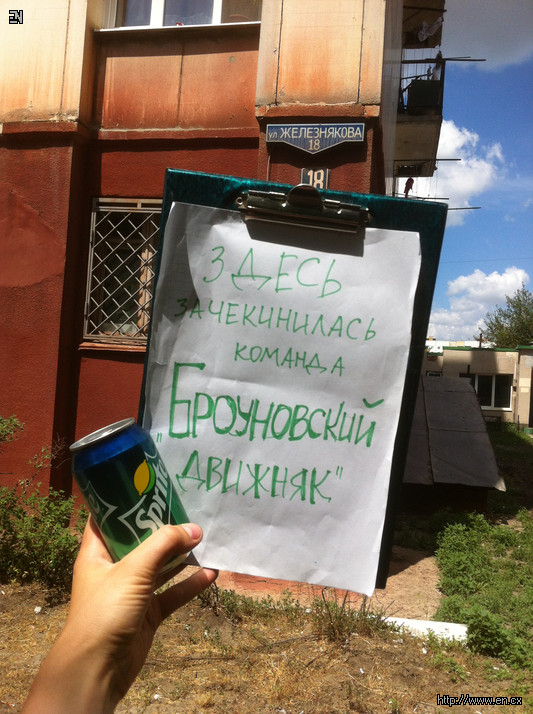 EN
ул ЖЕЛЕЗНЯКОВА
18
18
ЗДЕСЬ
ЗАЧЕКИНИЛАСЬ
КОМАНДА
"БРОУНОВСКИЙ
ДВИЖНЯК"
Sprite
http://www.en.cx